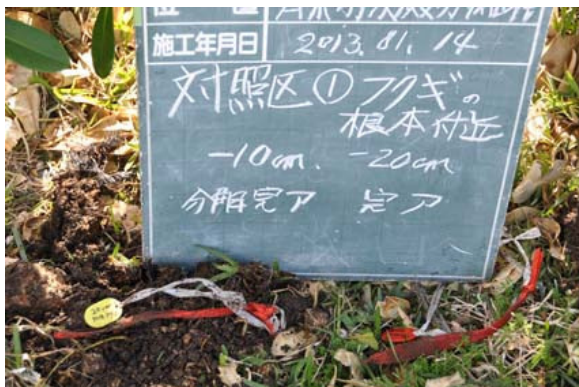 施工年月日 2013. 01. 14
対照区① フクギの
根本付近
-10cm. -20cm
分解完了 完了